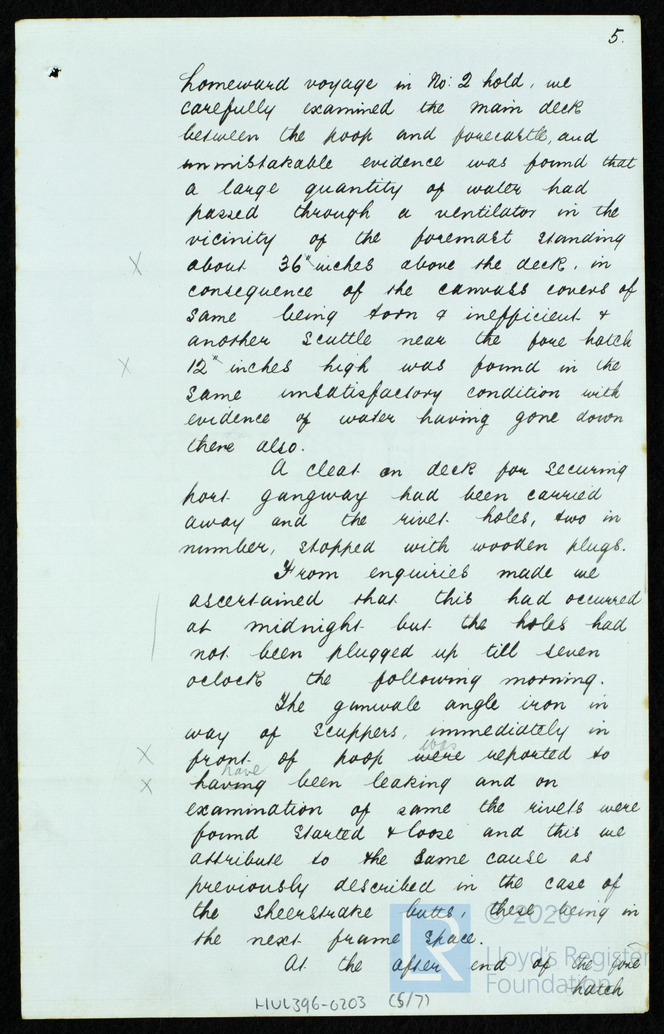 5.
homeward voyage in No: 2 hold, we
carefully examined the main deck
between the poop and forecastle, and
unmistakable evidence was found that
a large quantity of water had
passed through a ventilator in the
vicinity of the foremast standing
about 36" inches above the deck, in
consequence of the canvass covers of
same being torn & inefficient &
another scuttle near the fore hatch
12" inches high was found in the
same unsatisfactory condition with
evidence of water having gone down
there also.
A cleat on deck for securing
port gangway had been carried
away and the rivet holes, two in
number, stopped with wooden plugs.
From enquiries made we
ascertained that this had occurred
at midnight but the holes had
not been plugged up till seven
oclock the following morning.
The gunwale angle iron in
way of scuppers, immediately in
was
front of poop were reported to
have
having been leaking and on
examination of same the rivets were
found started & loose and this we
attribute to the same cause as
previously described in the case of
the sheerstrake butts, these being in
the next frame space.
At the after end of the fore
hatch
HUL396-0203 (5/7)
LR
© 2020
Lloyd's Register
Foundation